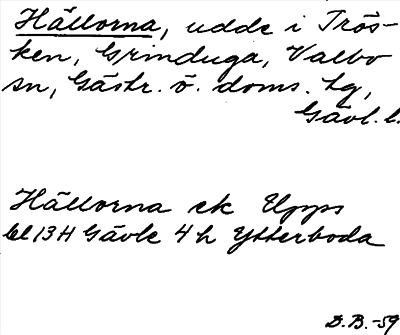 Hällorna, udde i Trös-
ken, Grinduga, Valbo
sn, Gästr. ö. doms. hg,
Gävl. l.
Hällorna ek Upps
bl 13H Gävle 4 h Ytterboda
D.B.-59